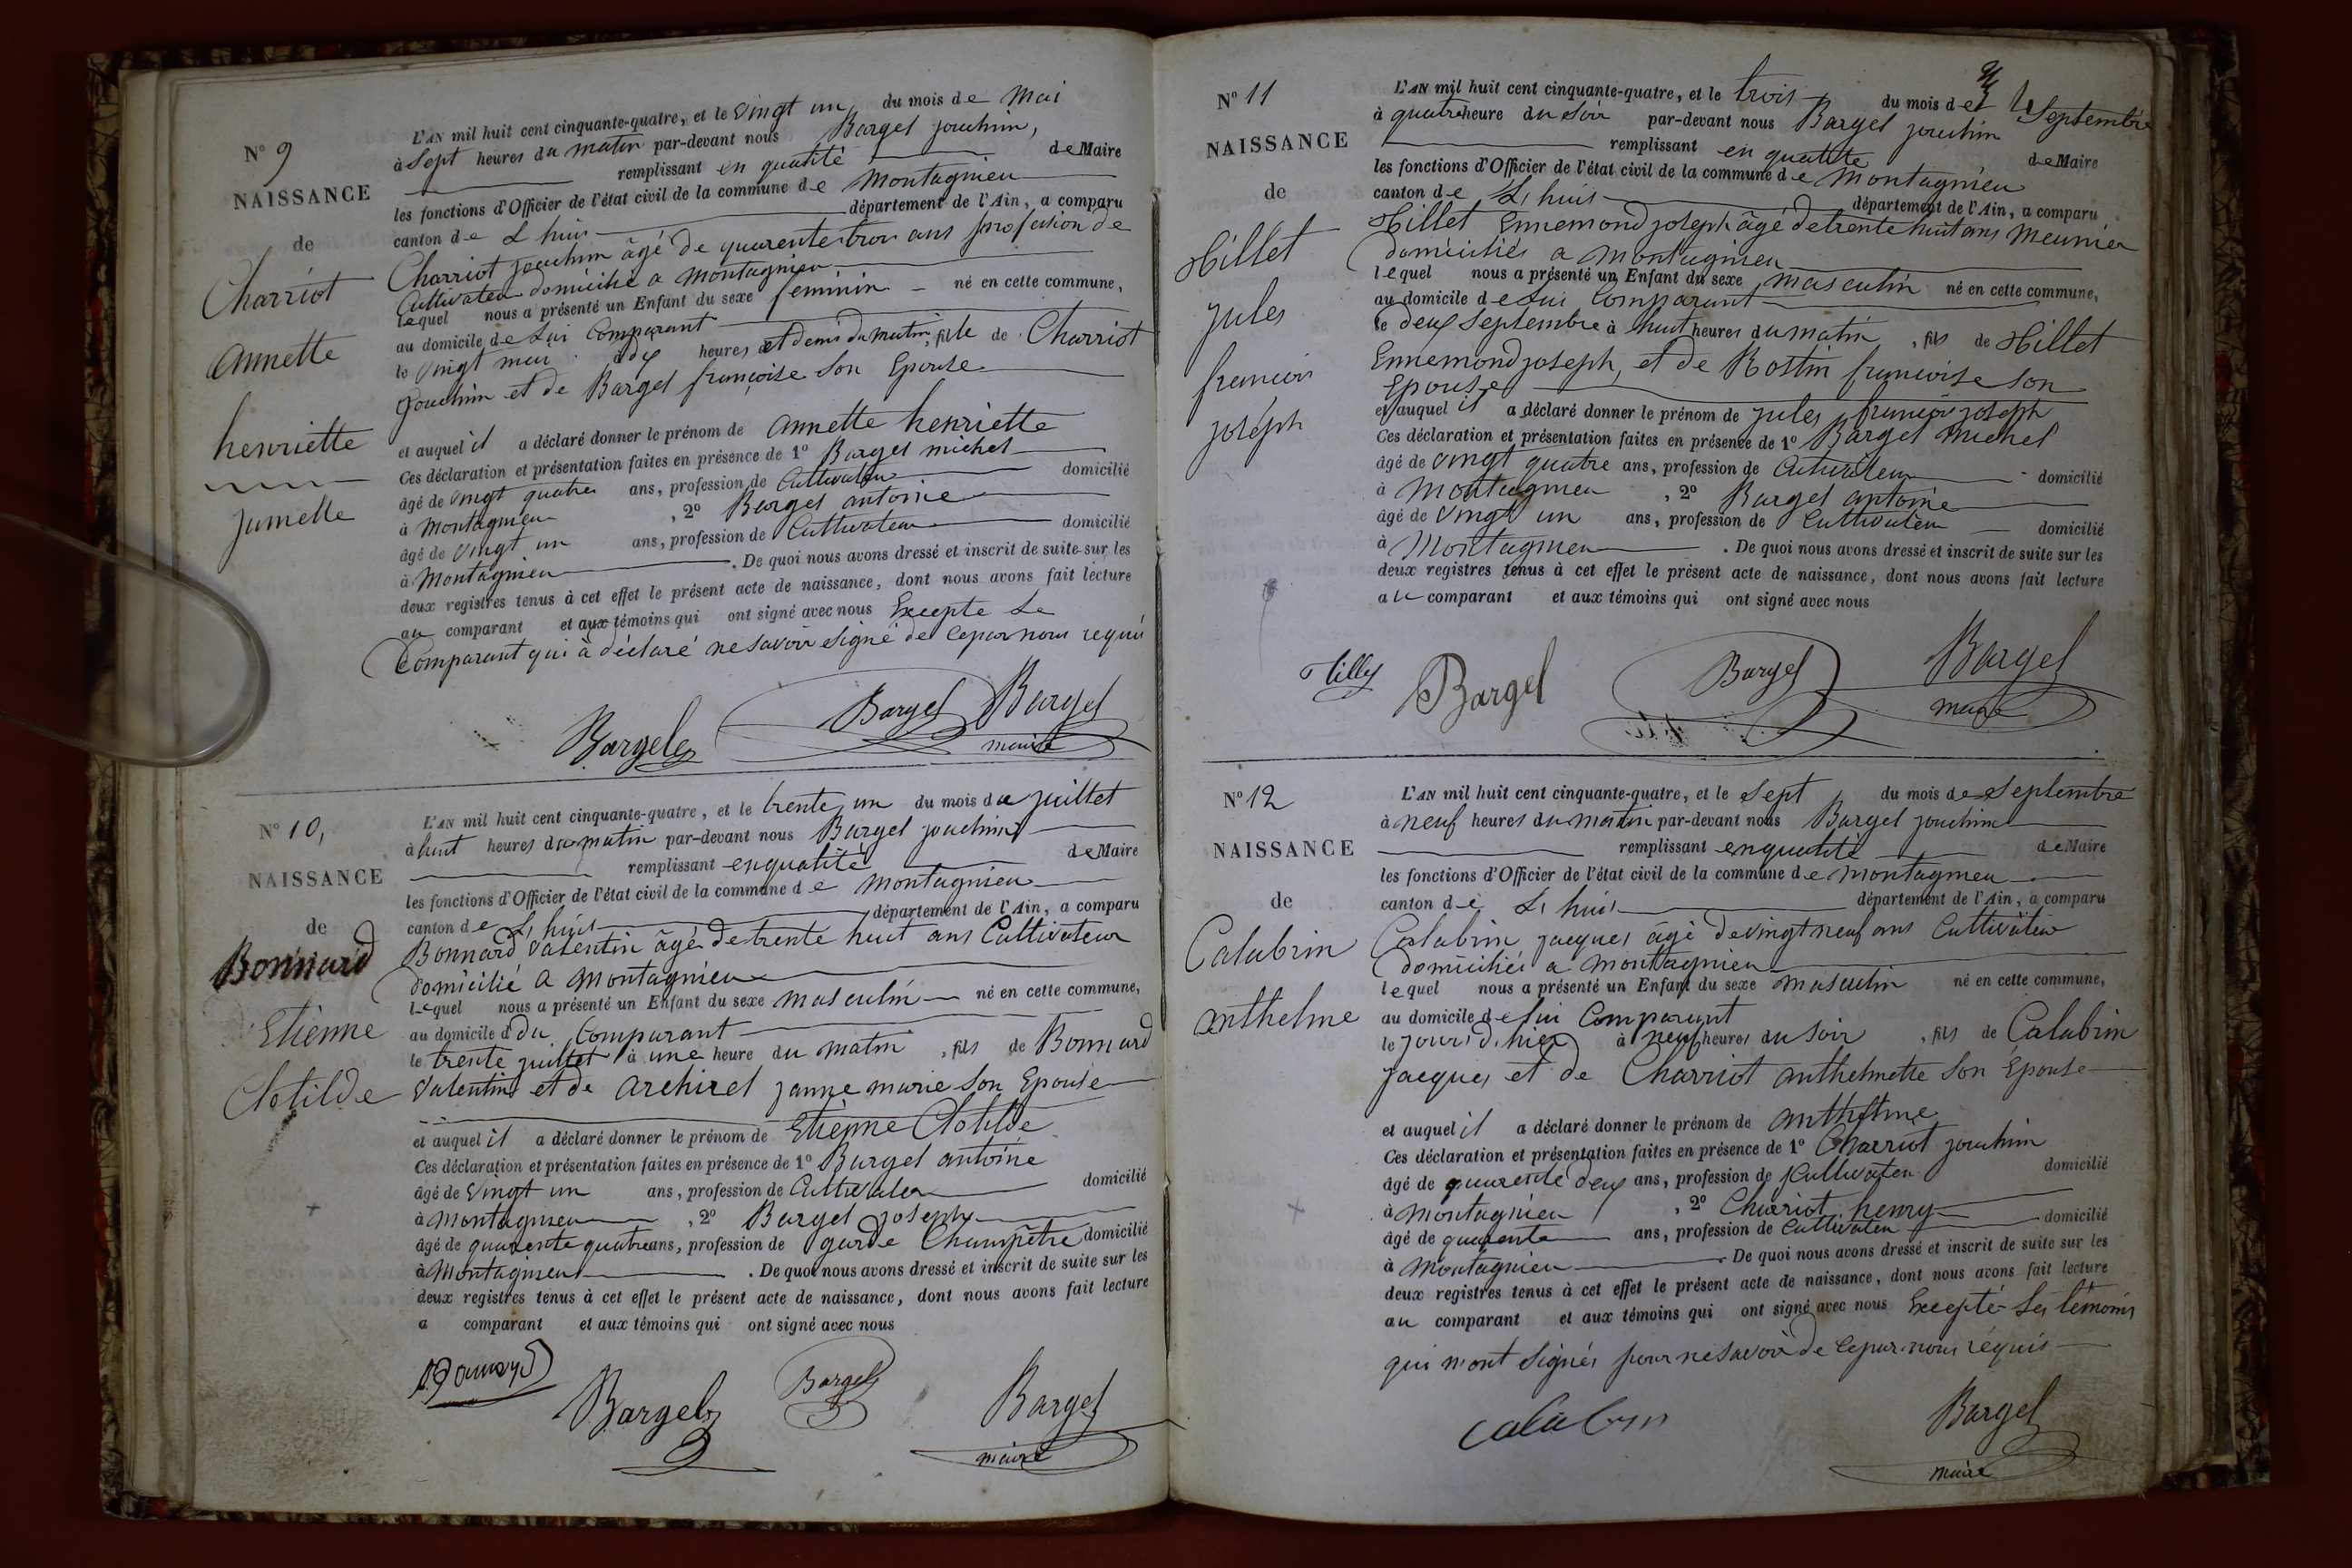 N° 9
NAISSANCE
de
Charriot
annette
henriette
jumelle
L'AN mil huit cent cinquante-quatre, et le vingt un du mois de Mai
à Sept heures du matin par-devant nous Bargel jouchim,
remplissant en qualité de Maire
les fonctions d'Officier de l'état civil de la commune de Montagnieu
canton de L huis département de l'Ain, a comparu
Charriot joachim âgé de quarente trois ans profession de
Cultivateur domicilié a montagnieu
lequel nous a présenté un Enfant du sexe féminin né en cette commune,
au domicile de Lui Comparant
le vingt mai à dix heures et demi du matin, fille de Charriot
Jouchim et de Bargel françoise Son Epouse
et auquel il a déclaré donner le prénom de annette henriette
Ces déclaration et présentation faites en présence de 1° Bargel michel
âgé de vingt quatre ans, profession de Cultivateur domicilié
à Montagnieu , 2° Bargel antoine
âgé de vingt un ans, profession de Cultivateur domicilié
à Montagnieu . De quoi nous avons dressé et inscrit de suite sur les
deux registres tenus à cet effet le présent acte de naissance, dont nous avons fait lecture
au comparant et aux témoins qui ont signé avec nous Excepte Le
Comparant qui à déclaré ne savoir signé de ce par nous requis
Bargel Bargel Bargel
maire
N° 10,
NAISSANCE
de
Bonnard
Etienne
Clotilde
L'AN mil huit cent cinquante-quatre, et le trente un du mois de juillet
à huit heures du matin par-devant nous Bargel jouchim
remplissant en qualité de Maire
les fonctions d'Officier de l'état civil de la commune de Montagnieu
canton de L huis département de l'Ain, a comparu
Bonnard Valentin âgé de trente huit ans Cultivateur
domicilié a Montagnieu
lequel nous a présenté un Enfant du sexe masculin né en cette commune,
au domicile d du Comparant
le trente juillet à une heure du matin , fils de Bonnard
Valentin et de archirel janne marie Son Epouse
et auquel il a déclaré donner le prénom de Etienne Clotilde
Ces déclaration et présentation faites en présence de 1° Bargel antoine
âgé de vingt un ans, profession de Cultivateur domicilié
à Montagnieu , 2° Bargel joseph
âgé de quarente quatre ans, profession de garde Champêtre domicilié
à Montagnieu . De quoi nous avons dressé et inscrit de suite sur les
deux registres tenus à cet effet le présent acte de naissance, dont nous avons fait lecture
a comparant et aux témoins qui ont signé avec nous
Bargel Bargel Bargel
maire
N° 11
NAISSANCE
de
Hillet
jules
françois
joséph
L'AN mil huit cent cinquante-quatre, et le trois du mois de Septembre
à quatre heure du Soir par-devant nous Bargel jouchim
remplissant en qualité de Maire
les fonctions d'Officier de l'état civil de la commune de Montagnieu
canton de L huis département de l'Ain, a comparu
Hillet Ennemond joseph âgé de trente huit ans Meunier
domiciliés a Montagnieu
lequel nous a présenté un Enfant du sexe masculin né en cette commune,
au domicile de Lui Comparant
le deux Septembre à huit heures du matin , fils de Hillet
Ennemond joseph, et de Rostin françoise Son
Epouse
et auquel il a déclaré donner le prénom de jules françois joseph
Ces déclaration et présentation faites en présence de 1° Bargel Michel
âgé de vingt quatre ans, profession de Cultivateur domicilié
à Montagnieu , 2° Bargel antoine
âgé de vingt un ans, profession de Cultivateur domicilié
à Montagnieu . De quoi nous avons dressé et inscrit de suite sur les
deux registres tenus à cet effet le présent acte de naissance, dont nous avons fait lecture
au comparant et aux témoins qui ont signé avec nous
Bargel Bargel Bargel
maire
N° 12
NAISSANCE
de
Calabrin
anthelme
L'AN mil huit cent cinquante-quatre, et le Sept du mois de Septembre
à neuf heures du matin par-devant nous Bargel jouchim
remplissant en qualité de Maire
les fonctions d'Officier de l'état civil de la commune de Montagnieu
canton de L huis département de l'Ain, a comparu
Calabrin jacques âgé de vingt neuf ans Cultivateur
domiciliés a Montagnieu
lequel nous a présenté un Enfant du sexe masculin né en cette commune,
au domicile de Lui Comparant
le jour d'hier à neuf heures du Soir , fils de Calabrin
jacques et de Charriot anthelmette Son Epouse
et auquel il a déclaré donner le prénom de anthelme
Ces déclaration et présentation faites en présence de 1° Charriot jouchim
âgé de quarente deux ans, profession de Cultivateur domicilié
à Montagnieu , 2° Charriot henry
âgé de quarente ans, profession de Cultivateur domicilié
à Montagnieu . De quoi nous avons dressé et inscrit de suite sur les
deux registres tenus à cet effet le présent acte de naissance, dont nous avons fait lecture
au comparant et aux témoins qui ont signé avec nous Excepté Les témoins
qui n'ont signés pour ne savoir de ce par nous réquis
Calabrin Bargel
maire